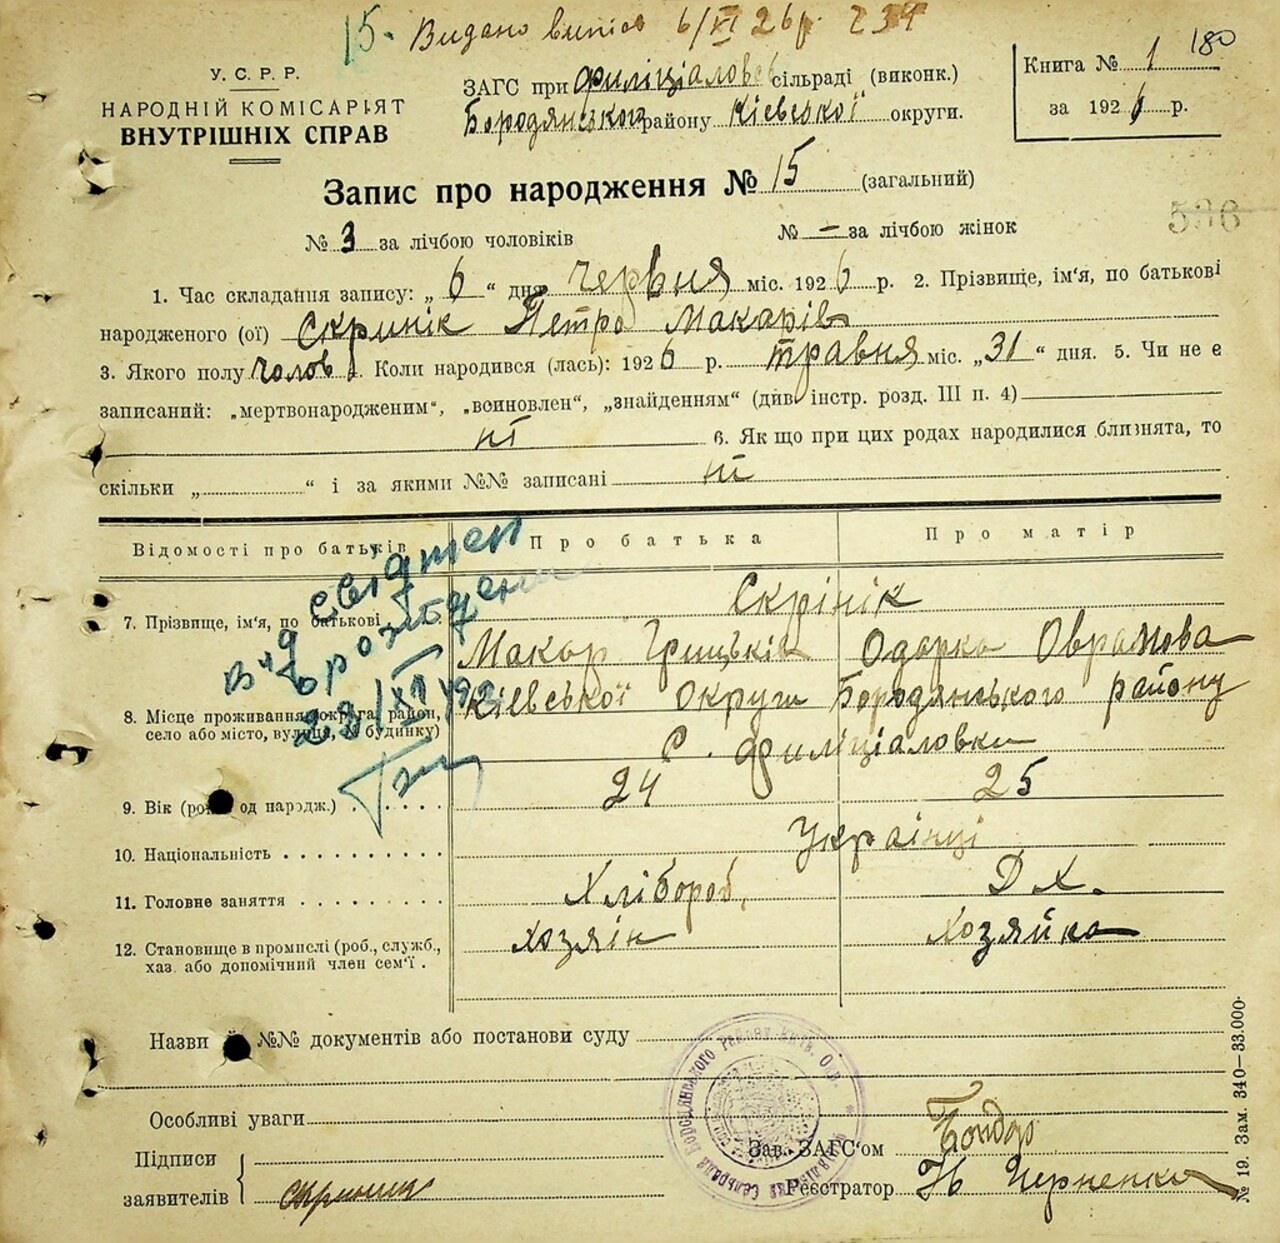 15. Видано випис 6/XI 26 р. 234
У. С. Р. Р.
НАРОДНІЙ КОМІСАРІЯТ
ВНУТРІШНІХ СПРАВ
ЗАГС при Филіціаловс сільраді (виконк.)
Бородянського району Кіевської округи.
Книга № 1 180
за 1926 р.
Запис про народження № 15 (загальний)
№ 3 за лічбою чоловіків № — за лічбою жінок
536
1. Час складання запису: „ 6 “ дня червня міс. 1926 р. 2. Прізвище, ім‘я, по батькові
народженого (ої) Скринік Петро Макарів
3. Якого полу чолов. Коли народився (лась): 1926 р. травня міс. „31“ дня. 5. Чи не є
записаний: „мертвонародженим“, „всиновлен“, „знайденням“ (див. інстр. розд. III п. 4)
ні 6. Як що при цих родах народилися близнята, то
скільки „ “ і за якими №№ записані ні
Відомості про батьків Про батька Про матір
7. Прізвище, ім‘я, по батькові Скрінік
Макар Грицьків Одарка Оврамова
8. Місце проживання, округа, район,
село або місто, вулиця, № будинку)
Кіевської округи Бородянського району
с. Филіціаловки
9. Вік (рок од народж.) 24 25
10. Національність Українці
11. Головне заняття Хлібороб, Д Х.
12. Становище в промислі (роб., служб.,
хаз. або допомічний член сем‘ї .
хозяін хозяйка
Від свідтел
о рожден
28/XII
Назви й №№ документів або постанови суду
Особливі уваги
Підписи
заявителів скриник
Зав. ЗАГС‘ом Бондар
Реєстратор Н Черненко
Бородянського району
№ 19. Зам. 340—33.000.